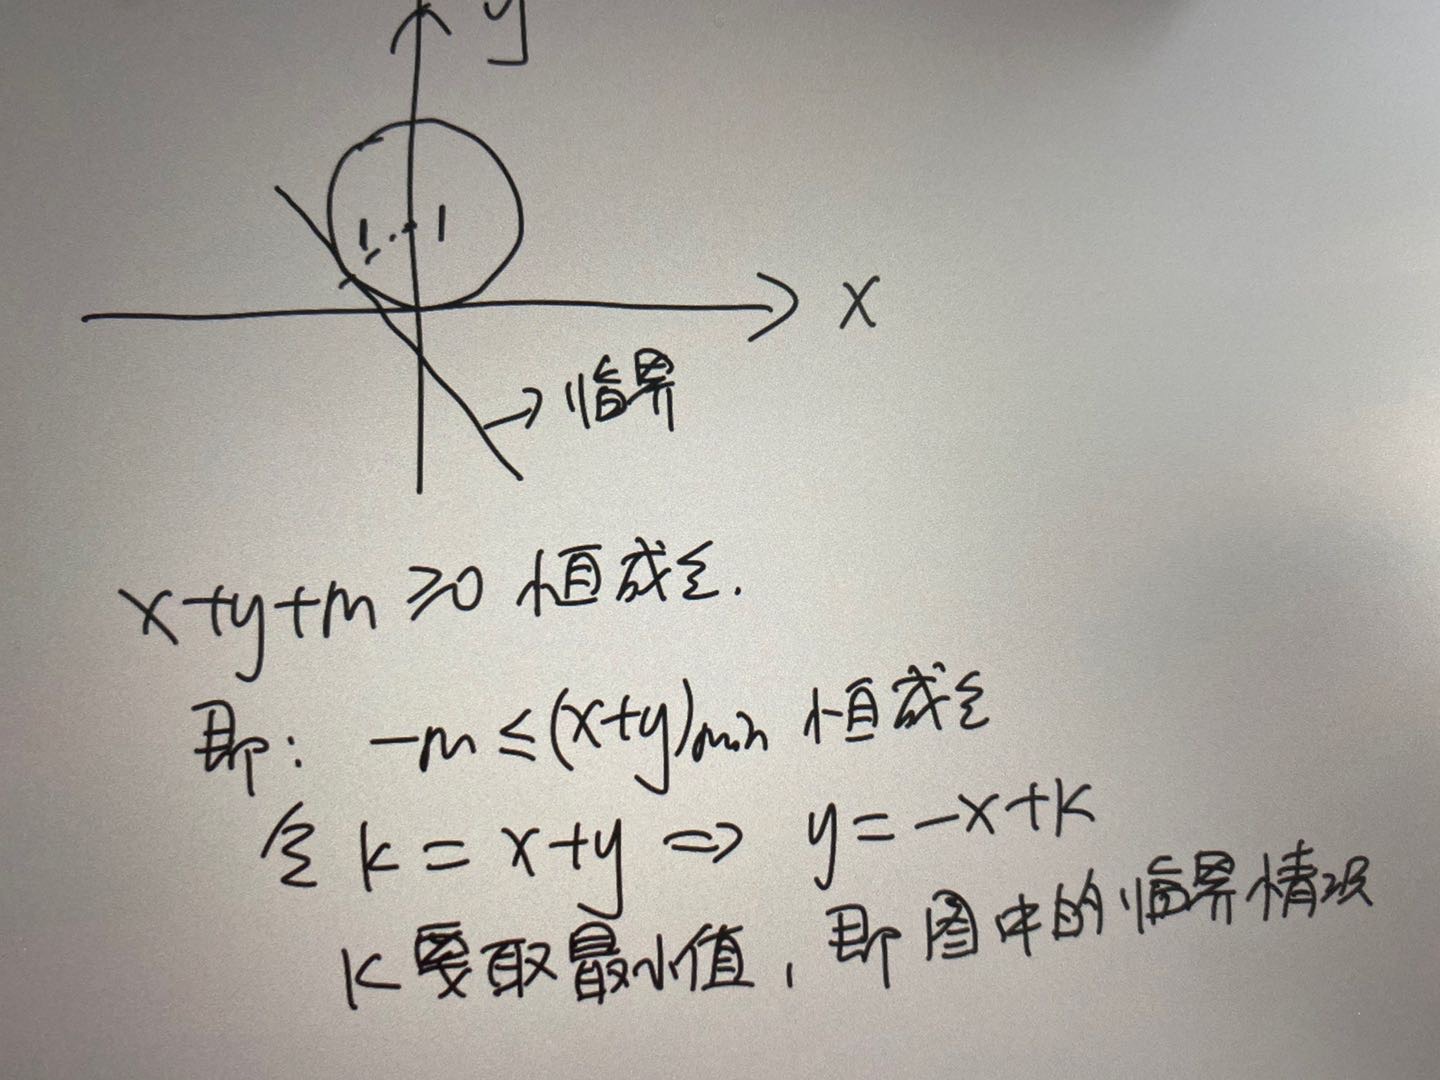 y
1 1
x
→临界
x+y+m≥0 恒成立.
即: -m≤(x+y)min 恒成立
令 k=x+y ⇒ y=-x+k
k要取最小值，即图中的临界情况